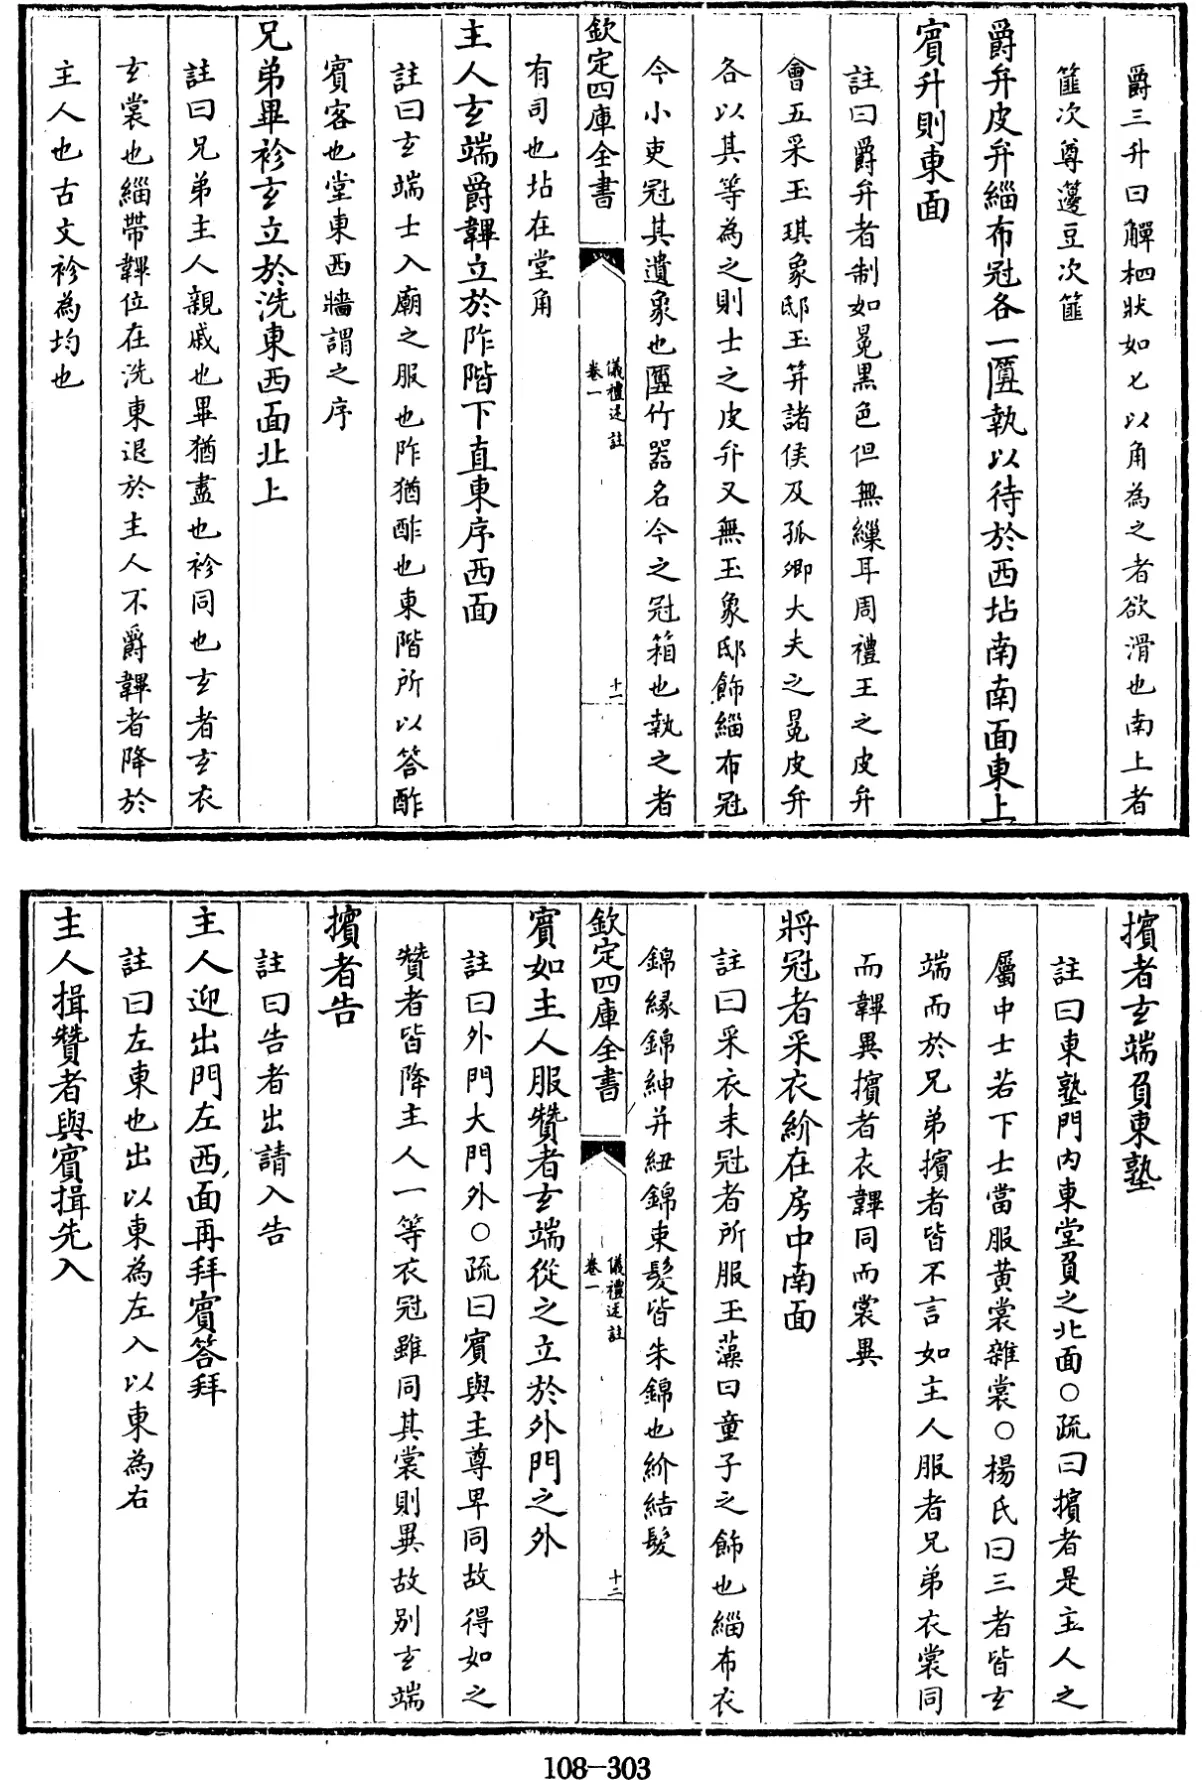 爵三升曰觶柶狀如匕以角為之者欲滑也南上者
篚次尊籩豆次篚
爵弁皮弁緇布冠各一匴執以待於西坫南南面東上
賓升則東面
註曰爵弁者制如冕黑色但無繅耳周禮王之皮弁
會五采玉琪象邸玉笄諸侯及孤卿大夫之冕皮弁
各以其等為之則士之皮弁又無玉象邸飾緇布冠
今小吏冠其遺象也匴竹器名今之冠箱也執之者
欽定四庫全書
儀禮述註
卷一
十一
有司也坫在堂角
主人玄端爵韠立於阼階下直東序西面
註曰玄端士入廟之服也阼猶酢也東階所以答酢
賓客也堂東西牆謂之序
兄弟畢袗玄立於洗東西面北上
註曰兄弟主人親戚也畢猶盡也袗同也玄者玄衣
玄裳也緇帶韠位在洗東退於主人不爵韠者降於
主人也古文袗為均也
擯者玄端負東塾
註曰東塾門內東堂負之北面○疏曰擯者是主人之
屬中士若下士當服黃裳雜裳○楊氏曰三者皆玄
端而於兄弟擯者皆不言如主人服者兄弟衣裳同
而韠異擯者衣韠同而裳異
將冠者采衣紒在房中南面
註曰采衣未冠者所服玉藻曰童子之飾也緇布衣
錦緣錦紳并紐錦束髮皆朱錦也紒結髮
欽定四庫全書
儀禮述註
卷一
十二
賓如主人服贊者玄端從之立於外門之外
註曰外門大門外○疏曰賓與主尊卑同故得如之
贊者皆降主人一等衣冠雖同其裳則異故别玄端
擯者告
註曰告者出請入告
主人迎出門左西面再拜賓答拜
註曰左東也出以東為左入以東為右
主人揖贊者與賓揖先入
108—303